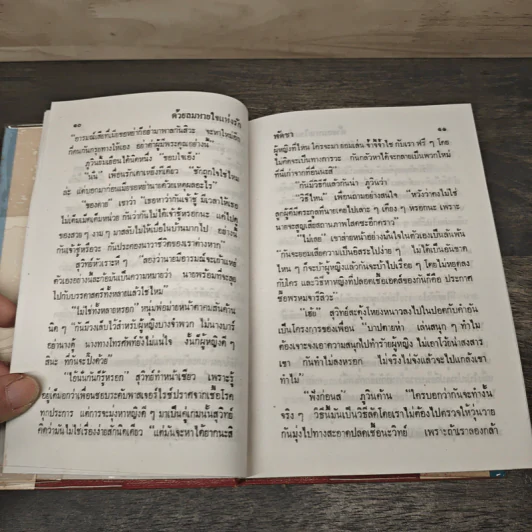 ๑๐
ด้วยลมหายใจแห่งรัก
"อารมณ์เสียที่เมียขอหย่าก็อย่ามาพาลกันสิวะ จะหาใหม่อีก
กี่คนกันกรุยทางให้เอง อย่าทำผู้มีพระคุณอย่างนี้"
ภูวินจ้องเขื่อนโค้นิดหนึ่ง "ชอบใจเอ็ง"
"นั่น" เพื่อนรักเดาหงส์ทีเดียว "ชักถูกใจใช่ไหม
ล่ะ แต่บอกมาก่อนเมียขอหย่านายด้วยเหตุผลอะไร"
"ของคำย" เขาว่า "เธอหาว่ากันเจ้าชู้ มีเวลาให้เธอ
ไม่เต็มเม็ดเต็มหน่วย กันว่ากันไม่ได้เจ้าชู้หรอกนะ แต่ไปดู
ของสวย ๆ งาม ๆ มาสลับไม่ให้เบื่อในบ้านมากไป อย่างนี้
กันเจ้าชู้หรือวะ กันประคองนาวาชีวิตของเราต่างหาก"
สุวิทย์หัวเราะหึ ๆ "ลองว่านายมีอารมณ์จะเอาเข้า
ตัวเองอย่างนี้ละก้อมันเป็นความหมายว่า นายพร้อมที่จะลุย
ไปกับบรรดาสตรีทั้งหลายแล้วใช่ไหม"
"ไม่ใช่ทั้งหลายหรอก" หนุ่มพ่อม่ายหน้าตาคมสันค้าน
นิด ๆ "กันมีวงเล็บไว้สำหรับผู้หญิงบางจำพวก ไม่นางบาร์
อย่านางตี้ นางทางโทรศัพท์ก้อไม่แน่ใจ งั้นก็ผู้หญิงดี ๆ
สินะ ที่กันจะปิ๊งด้วย"
"ไอ้นั่นกันก็รู้หรอก" สุวิทย์ทำหน้าเซียว เพราะรู้
อยู่เต็มอกว่าเพื่อนชอบระดับพาสเจอร์ไรซ์ปราศจากเชื้อโรค
ทุกประการ แต่การจะมุ่งหาหญิงดี ๆ มาเป็นคู่เกมนั้นสุวิทย์
คิดว่ามันไม่ใช่เรื่องง่ายสักนิดเดียว "แต่มันจะหาได้ยากนะสิ
พัดชา
๑๑
ผู้หญิงที่ไหน ใครจะมายอมเล่น จ้ำจี้จ้ำไช กับเรา ฟรี ๆ โดย
ไม่คิดจะเป็นทางการวะ กันกลัวหาได้จะกลายเป็นพวกใหม่
ที่มีเก่าจากที่อื่นนะสิ"
"กันมีวิธีก็แล้วกันน่า ภูวินว่า
"วิธีไหน" เพื่อนถามอย่างสนใจ "หวังว่าคงไม่ใช่
ลูกผู้ดีมีตระกูลที่นายเคยไปเล่าะ ๆ เตียง ๆ หรอกนะ เพราะ
นายจะสูญเสียสถานภาพโสดซะอีกคราว"
"ไม่เลย" เขาส่ายหน้าอย่างมั่นใจในตัวเองเป็นล้นพ้น
"กันจะยอมเสียความเป็นอิสระไปง่าย ๆ ไม่ได้เป็นอันขาด
ไหน ๆ ก็จะบ้าผู้หญิงแล้วกันจะบ้าไปเรื่อย ๆ โดยไม่หยุดลง
กับใคร และวิธีหาหญิงที่ปลอดเชื้อเอดส์ของกันก็คือ ประกาศ
ซื้อพรหมจารีสิวะ"
"เฮ้ย" สุวิทย์สะดุ้งโหยงหนาวสงไปในปอดกับคำอัน
เป็นโครงการของเพื่อน "บาปตายห่า เล่นสนุก ๆ ทำไม
ต้องเจาะจงเอาความสนุกไปทำร้ายผู้หญิง ไม่เอาไว้ย่น่าสงสาร
เขา กันทำไม่ลงหรอก ไม่จริงไม่จังแล้วจะไปแกล้งเขา
ทำไม"
"ฟังก่อนสิ" ภูวินค้าน "ใครบอกว่ากันจะทำงั้น
จริง ๆ วิธีนี้มันเป็นวิธีลัดโดยเราไม่ต้องไปตรวจให้วุ่นวาย
กันมุ่งไปทางสะอาดปลดเชื้อนะวิทย์ เพราะถ้าเราลองกล้า